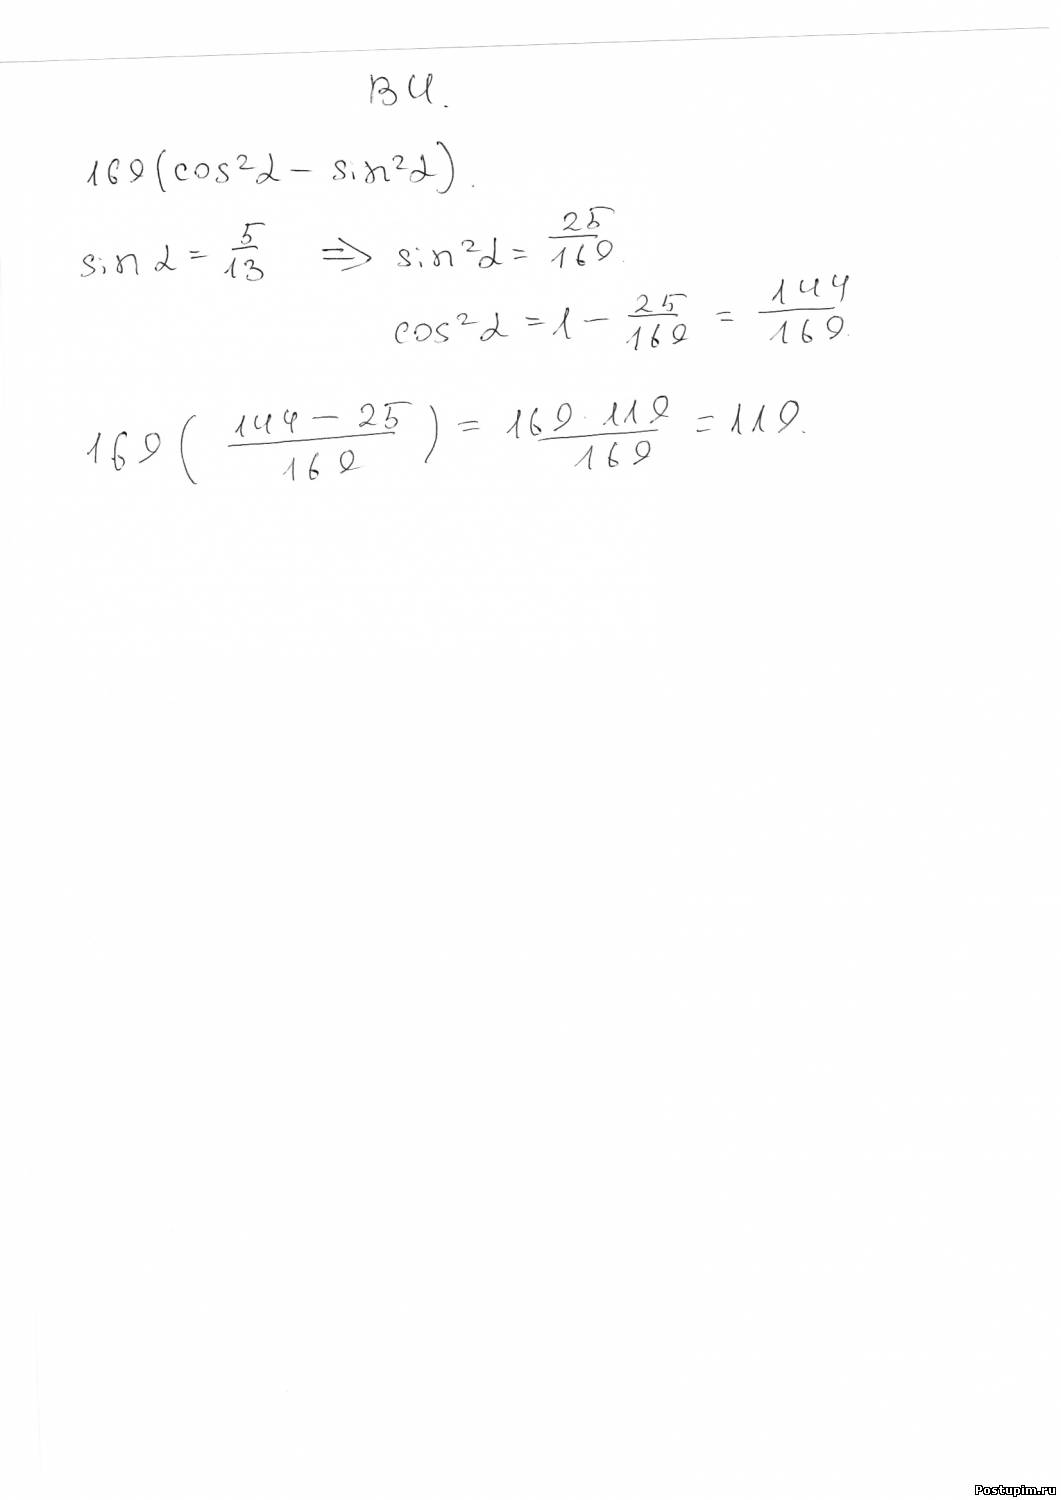 В4.
169(cos²α - sin²α).
sin α = 5/13 => sin²α = 25/169.
cos²α = 1 - 25/169 = 144/169.
169((144 - 25)/169) = (169 · 119)/169 = 119.
Postupim.ru